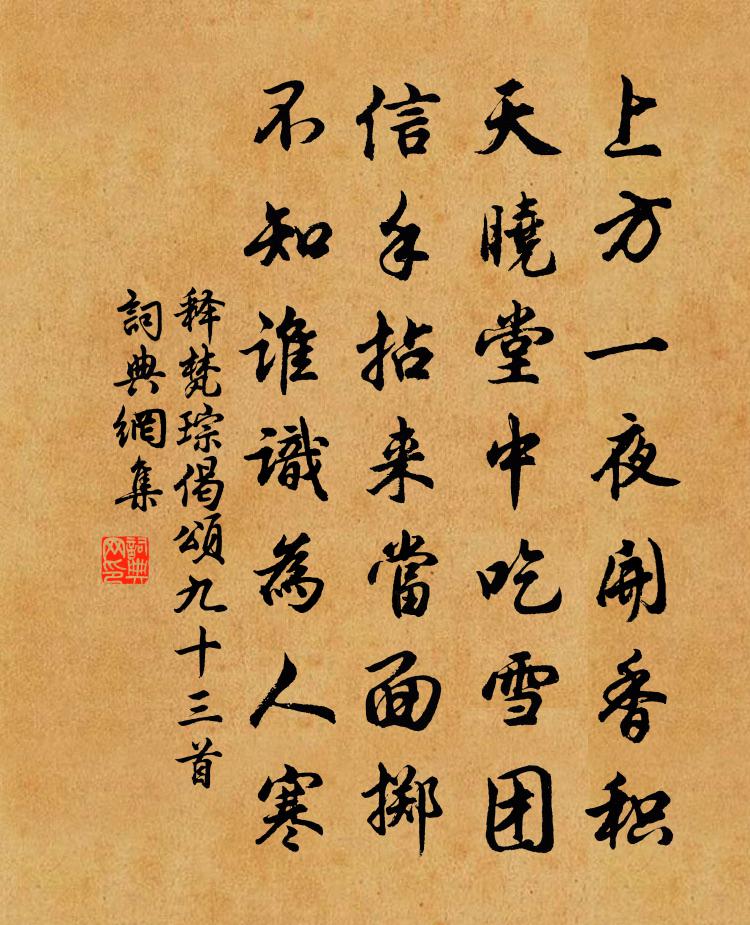 上方一夜開香积
天曉堂中吃雪团
信手拈来當面掷
不知誰識為人寒
释梵琮偈頌九十三首
詞典網集
詞典网印